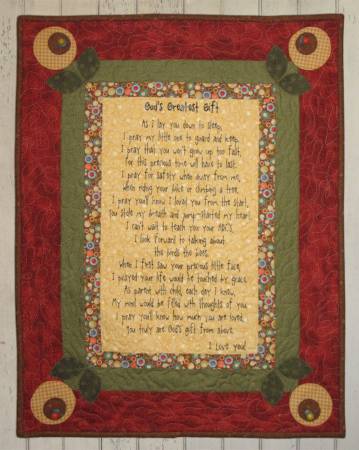 God's Greatest Gift
As i lay you down to sleep,
I pray my little one to guard and keep,
I pray that you won't grow up too fast,
For this precious time will have to last.
I pray for safety when away from me,
when riding your bike or climbing a tree.
I pray you'll know I loved you from the start,
You stole my breath and jump-started my heart.
I can't wait to teach you your ABC's,
I look forward to talking about
the birds the bees.
When I first saw your precious little face,
I prayed your life would be touched by grace.
As parent with child, each day I knew,
My mind would be filled with thoughts of you.
I pray you'll know how much you are loved,
You truly are God's gift from above.
I Love you!